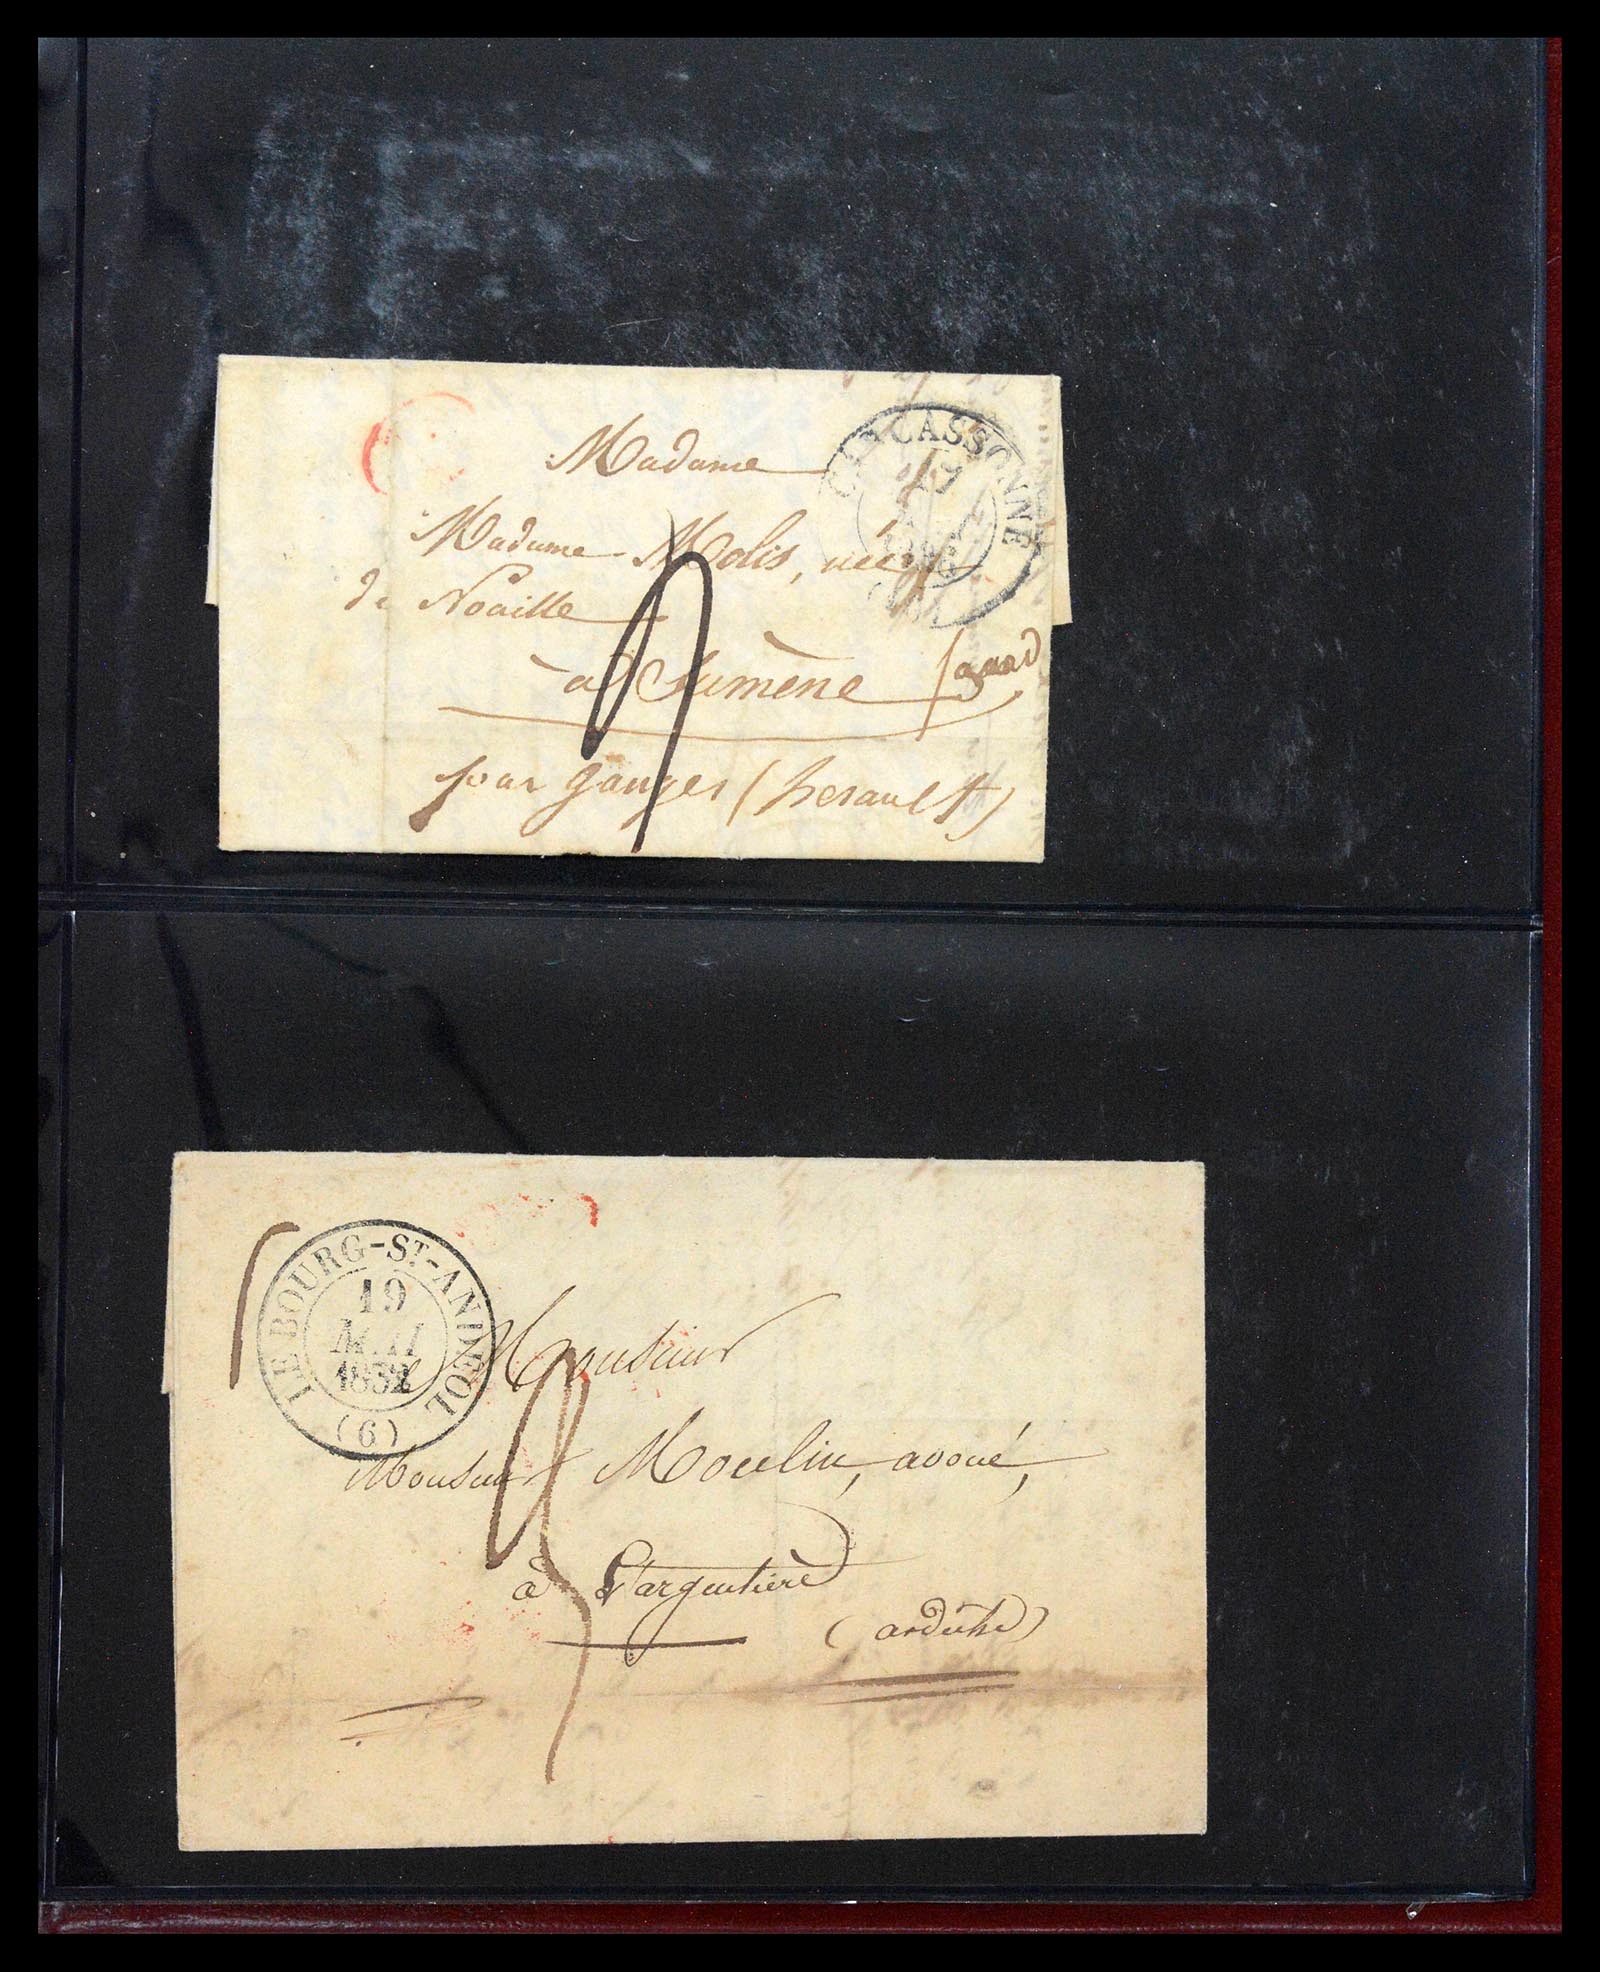 CARCASSONNE
17
Madame
Madame Molis, née
de Noaille
à Sumène (gard
pour ganges (herault)
LE BOURG-ST-ANDEOL
19
MAI
183
(6)
Monsieur
Monsieur Moulin, avoué,
à Largentière
(ardèche)